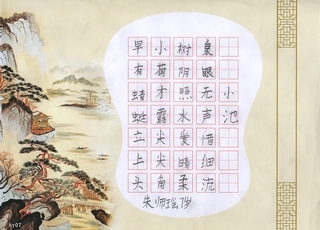 小池
泉眼无声惜细流
树阴照水爱晴柔
小荷才露尖尖角
早有蜻蜓立上头
朱师瑶抄